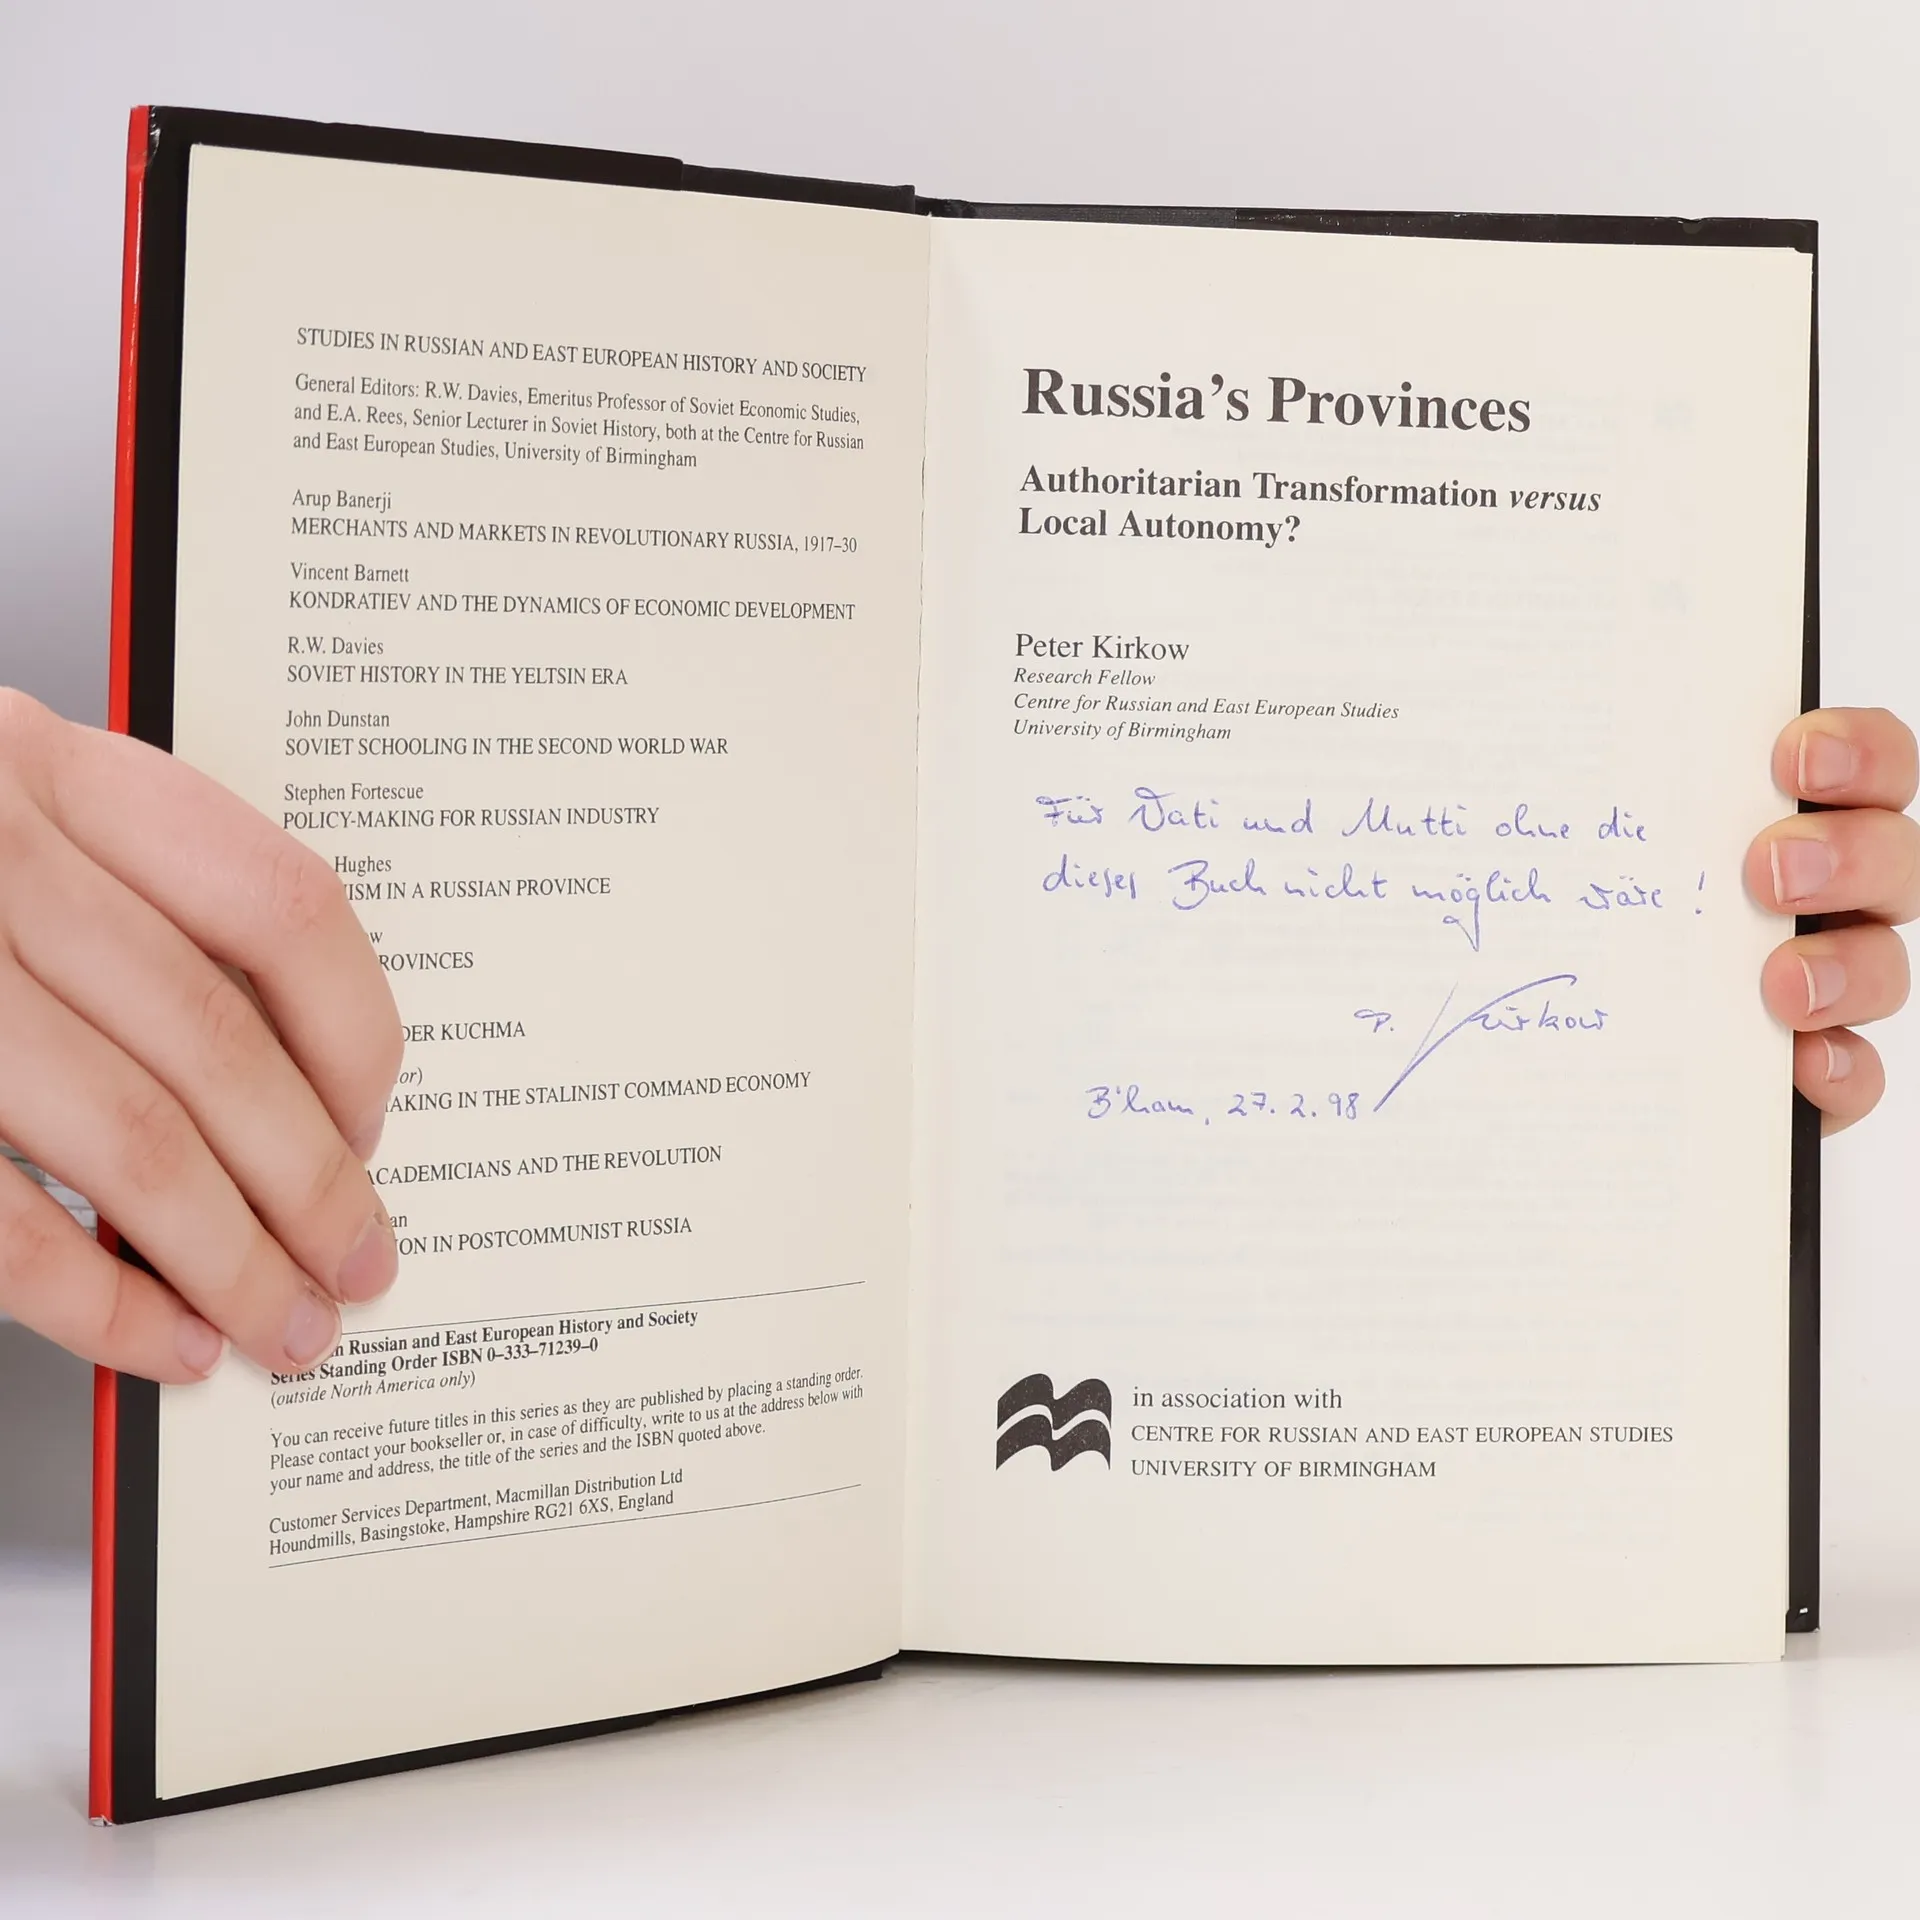 STUDIES IN RUSSIAN AND EAST EUROPEAN HISTORY AND SOCIETY
General Editors: R.W. Davies, Emeritus Professor of Soviet Economic Studies,
and E.A. Rees, Senior Lecturer in Soviet History, both at the Centre for Russian
and East European Studies, University of Birmingham
Arup Banerji
MERCHANTS AND MARKETS IN REVOLUTIONARY RUSSIA, 1917–30
Vincent Barnett
KONDRATIEV AND THE DYNAMICS OF ECONOMIC DEVELOPMENT
R.W. Davies
SOVIET HISTORY IN THE YELTSIN ERA
John Dunstan
SOVIET SCHOOLING IN THE SECOND WORLD WAR
Stephen Fortescue
POLICY-MAKING FOR RUSSIAN INDUSTRY
Hughes
ISM IN A RUSSIAN PROVINCE
w
ROVINCES
DER KUCHMA
or)
AKING IN THE STALINIST COMMAND ECONOMY
ACADEMICIANS AND THE REVOLUTION
an
ION IN POSTCOMMUNIST RUSSIA
n Russian and East European History and Society
Series Standing Order ISBN 0–333–71239–0
(outside North America only)
You can receive future titles in this series as they are published by placing a standing order.
Please contact your bookseller or, in case of difficulty, write to us at the address below with
your name and address, the title of the series and the ISBN quoted above.
Customer Services Department, Macmillan Distribution Ltd
Houndmills, Basingstoke, Hampshire RG21 6XS, England
Russia's Provinces
Authoritarian Transformation versus
Local Autonomy?
Peter Kirkow
Research Fellow
Centre for Russian and East European Studies
University of Birmingham
Für Vati und Mutti ohne die
dieses Buch nicht möglich wäre!
P. Kirkow
B'ham, 27. 2. 98
in association with
CENTRE FOR RUSSIAN AND EAST EUROPEAN STUDIES
UNIVERSITY OF BIRMINGHAM